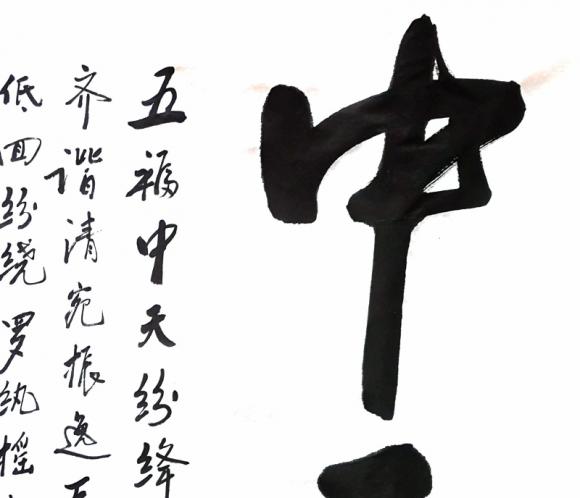 中
五福中天纷绛
齐谐清宛振逸
低回纷绕罗纨摇